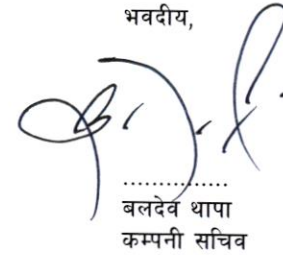 भवदीय,
..............
बलदेव थापा
कम्पनी सचिव